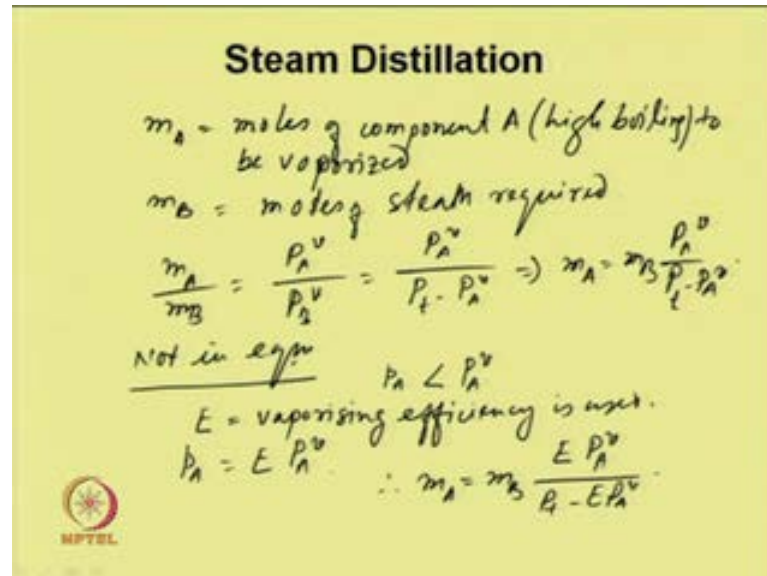 Steam Distillation
m_A = moles of component A (high boiling) to
be vaporized
m_B = moles of steam required
m_A/m_B = P_A^v/P_B^v = P_A^v/(P_t - P_A^v) => m_A = m_B P_A^v/(P_t - P_A^v)
Not in eqm p_A < P_A^v
E = vaporising efficiency is used.
p_A = E P_A^v ∴ m_A = m_B E P_A^v/(P_t - E P_A^v)
NPTEL